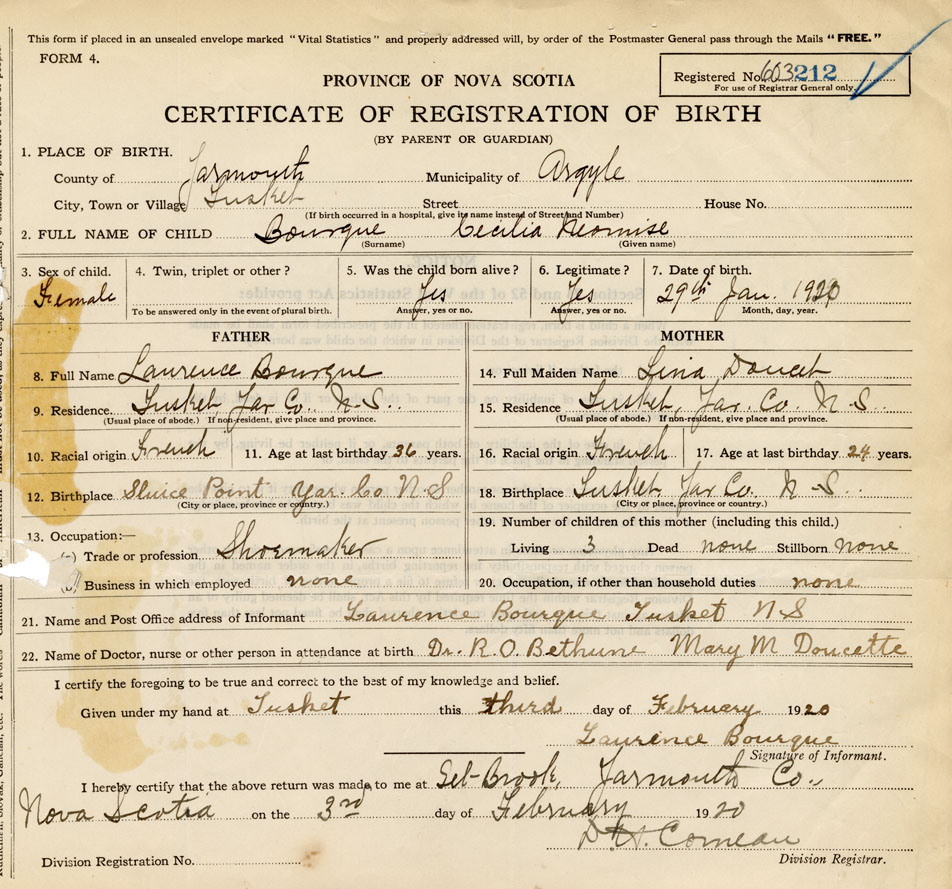 This form if placed in an unsealed envelope marked "Vital Statistics" and properly addressed will, by order of the Postmaster General pass through the Mails "FREE."
FORM 4.
Registered No. 603212
For use of Registrar General only.
PROVINCE OF NOVA SCOTIA
CERTIFICATE OF REGISTRATION OF BIRTH
(BY PARENT OR GUARDIAN)
1. PLACE OF BIRTH.
County of Yarmouth Municipality of Argyle
City, Town or Village Tusket Street House No.
(If birth occurred in a hospital, give its name instead of Street and Number)
2. FULL NAME OF CHILD Bourque Cecilia Neomise
(Surname) (Given name)
3. Sex of child. 4. Twin, triplet or other? 5. Was the child born alive? 6. Legitimate? 7. Date of birth.
Female Yes Yes 29th Jan. 1920
To be answered only in the event of plural birth. Answer, yes or no. Answer, yes or no. Month, day, year.
FATHER
8. Full Name Laurence Bourque
9. Residence. Tusket, Yar Co. N-S.
(Usual place of abode.) If non-resident, give place and province.
10. Racial origin French 11. Age at last birthday 36 years.
12. Birthplace Sluice Point Yar. Co N.S
(City or place, province or country.)
13. Occupation:—
Trade or profession Shoemaker
Business in which employed none
MOTHER
14. Full Maiden Name Lina Doucet
15. Residence Tusket, Yar. Co. N-S.
(Usual place of abode.) If non-resident, give place and province.
16. Racial origin French 17. Age at last birthday 24 years.
18. Birthplace Tusket Yar Co. N-S.
(City or place, province or country.)
19. Number of children of this mother (including this child.)
Living 3 Dead none Stillborn none
20. Occupation, if other than household duties none
21. Name and Post Office address of Informant Laurence Bourque Tusket N S
22. Name of Doctor, nurse or other person in attendance at birth Dr. R. O. Bethune Mary M Doucette
I certify the foregoing to be true and correct to the best of my knowledge and belief.
Given under my hand at Tusket this third day of February 1920
Laurence Bourque
Signature of Informant.
I hereby certify that the above return was made to me at Eel-Brook, Yarmouth Co.,
Nova Scotia on the 3rd day of February 1920
Comeau
Division Registration No. Division Registrar.